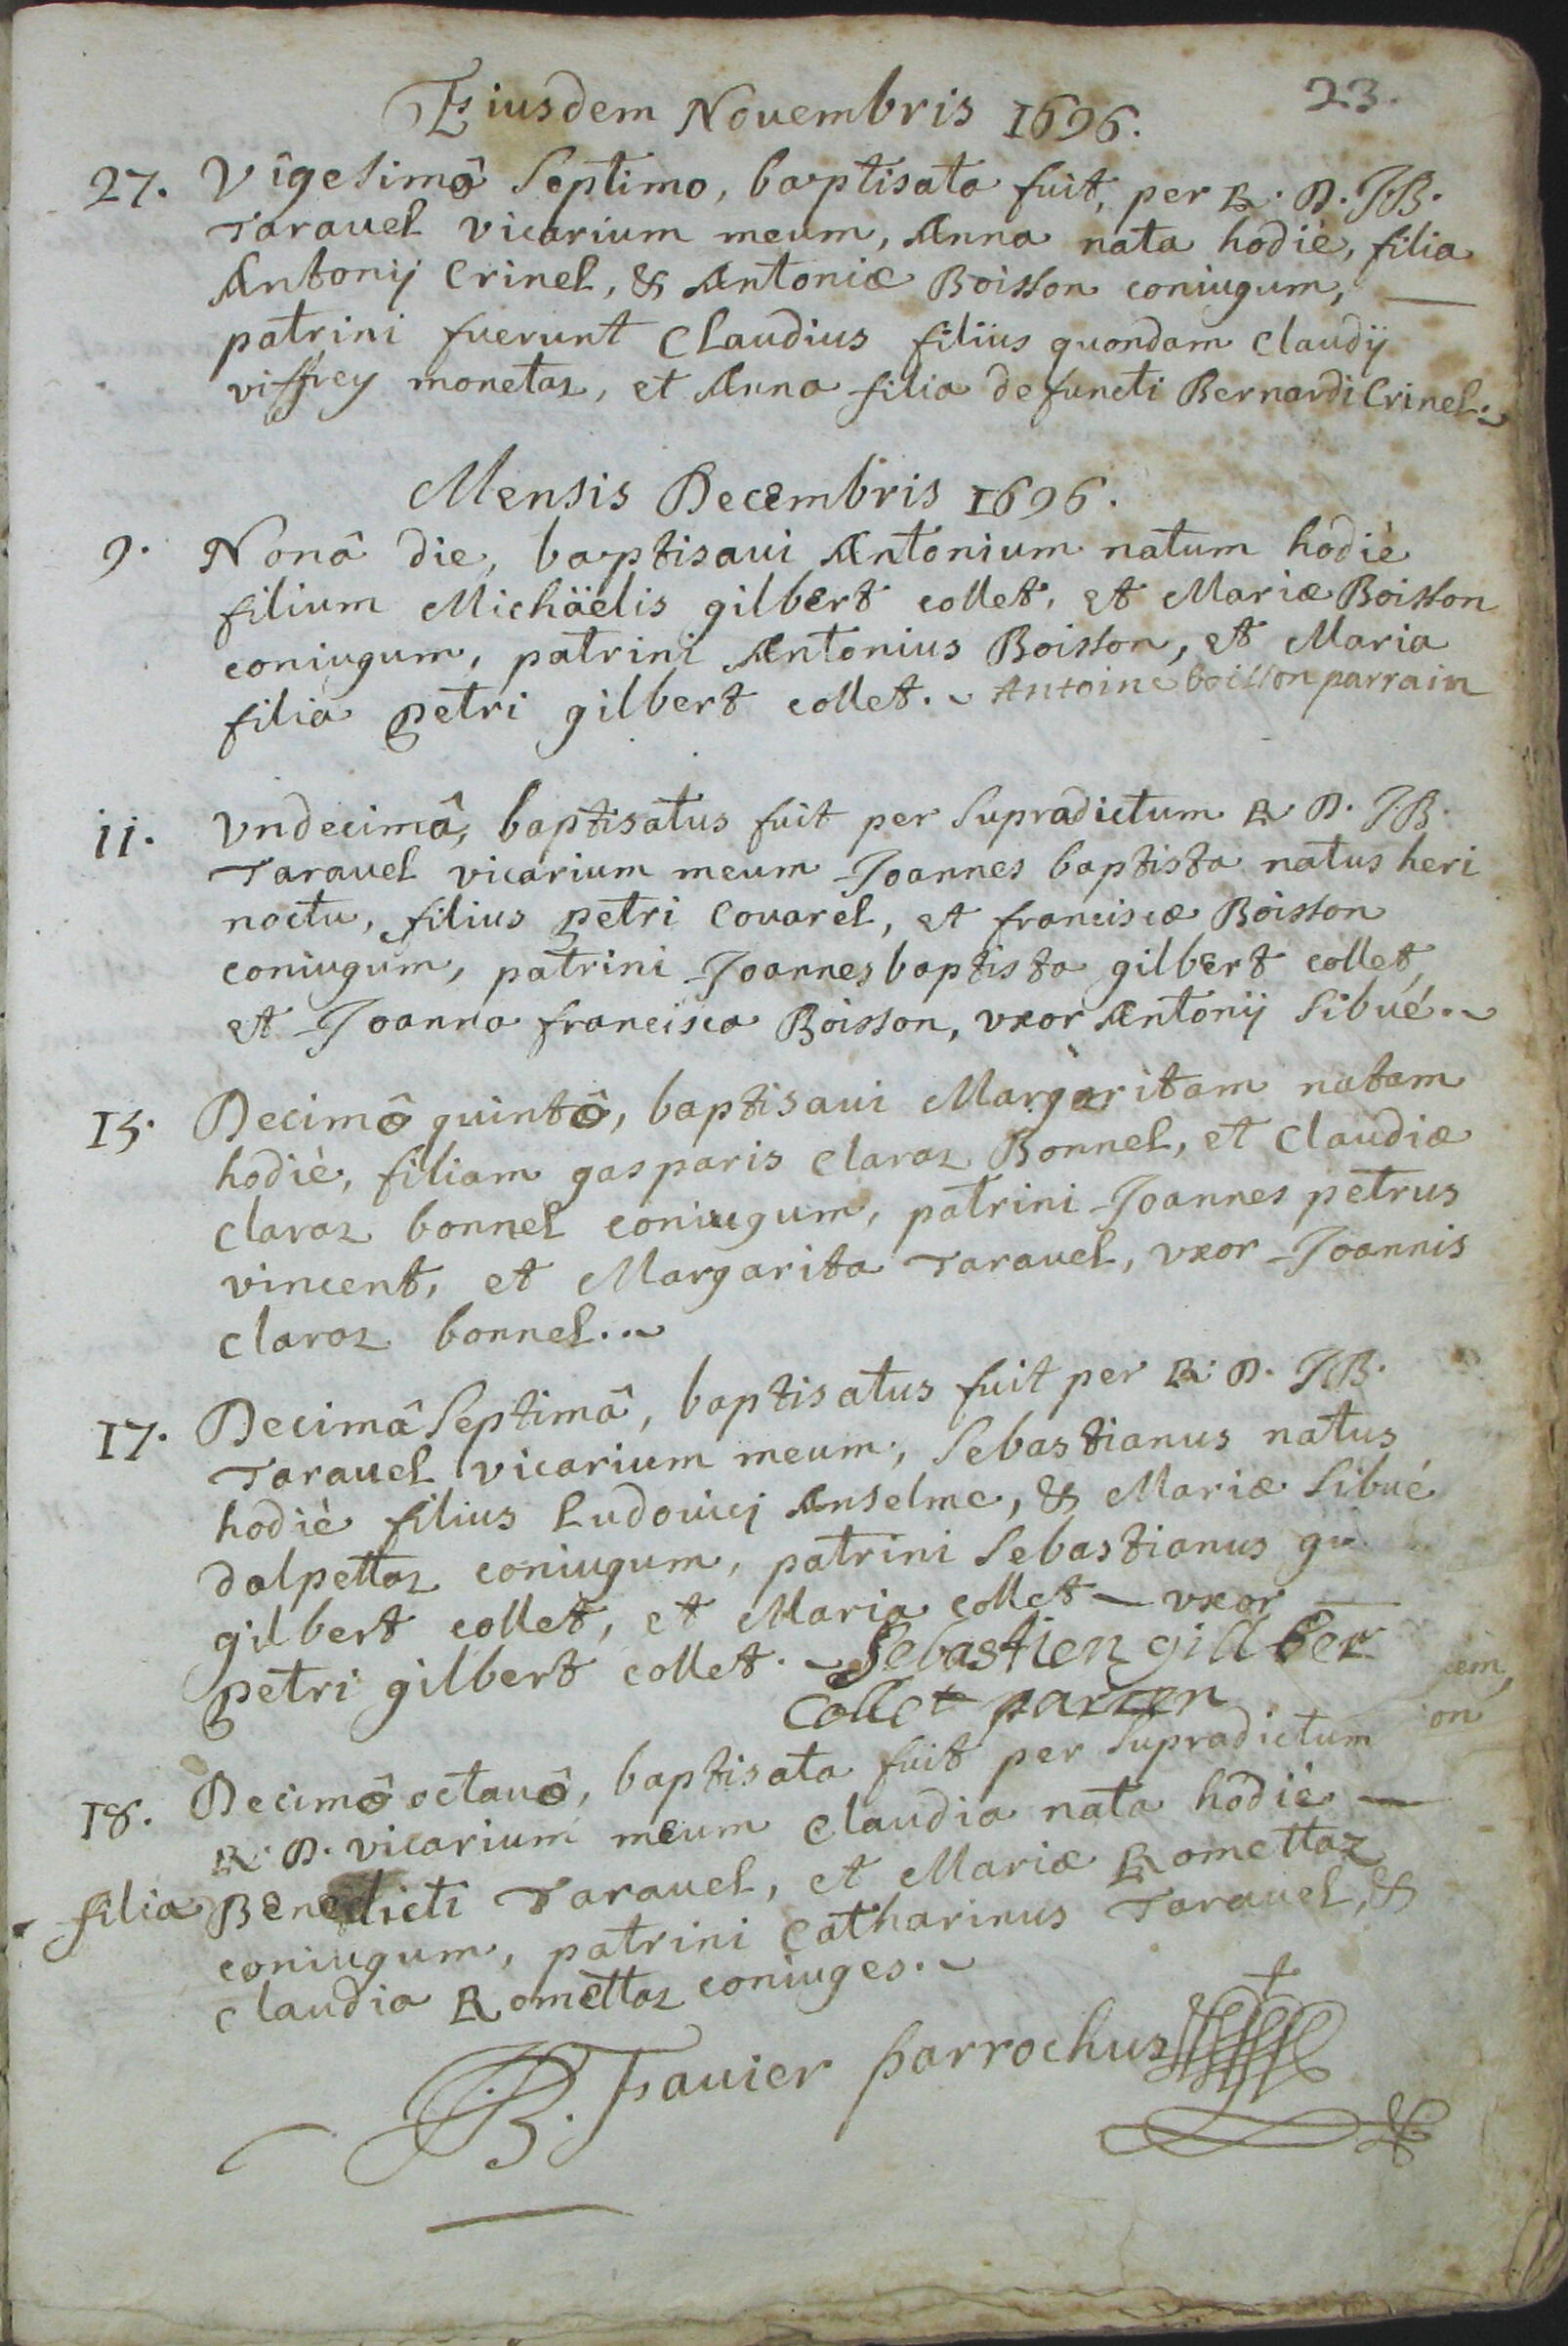 23.
Eiusdem Nouembris 1696.
27. Vigesimô Septimo, baptisata fuit, per R. D. J.B.
Tarauel vicarium meum, Anna nata hodiè, filia
Antonij Crinel, & Antoniæ Boisson coniugum,
patrini fuerunt Claudius filius quondam Claudij
viffrey monetaz, et Anna filia defuncti Bernardi Crinel.
Mensis Decembris 1696.
9. Nonâ die, baptisaui Antonium natum hodiè
filium Michäelis gilbert collet, et Mariæ Boisson
coniugum, patrini Antonius Boisson, et Maria
filia petri gilbert collet. Antoine boisson parrain
11. Vndecimâ, baptisatus fuit per Supradictum R D. J.B.
Tarauel vicarium meum Joannes baptista natus heri
noctu, filius petri Couarel, et franciscæ Boisson
coniugum, patrini Joannes baptista gilbert collet,
et Joanna francisca Boisson, vxor Antonij Sibué.
15. Decimô quintô, baptisaui Margaritam natam
hodiè, filiam gasparis claraz Bonnel, et Claudiæ
claraz bonnel coniugum, patrini Joannes petrus
vincent, et Margarita Tarauel, vxor Joannis
claraz bonnel.
17. Decimâ Septimâ, baptisatus fuit per R. D. J.B.
Tarauel vicarium meum, Sebastianus natus
hodiè filius Ludouicj Anselme, & Mariæ Sibué
dalpettaz coniugum, patrini Sebastianus
gilbert collet, et Maria collet vxor
petri gilbert collet. Sebastien gillber
Collet parren
18. Decimô octauô, baptisata fuit per Supradictum
R. D. vicarium meum Claudia nata hodiè
filia Benedicti Tarauel, et Mariæ Romettaz
coniugum, patrini Catharinus Tarauel, &
claudia Romettaz coniuges.
JB. Fauier parrochus